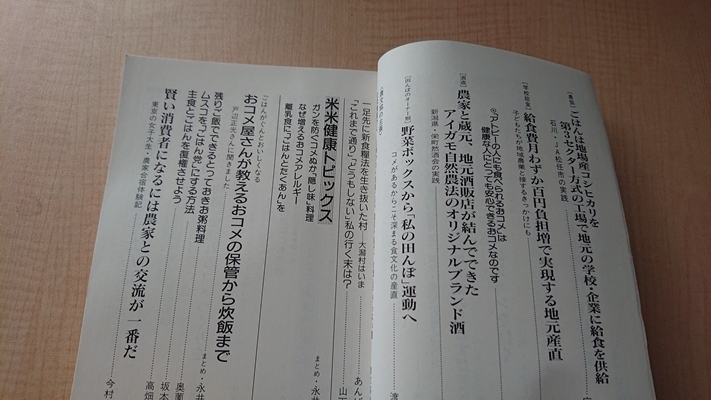 [農協]
ごはんは地場産コシヒカリを
第3セクター方式の工場で地元の学校・企業に給食を供給
石川・JA松任市の実践
[学校給食]
給食費月わずか百円負担増で実現する地元産直
子どもたちが地域農業と接するきっかけにも
◎「アトピーの人にも食べられるおコメ」は
健康な人にとっても安心できるおコメなのです
[酒造]
農家と蔵元、地元酒販店が結んでできた
アイガモ自然農法のオリジナルブランド酒
新潟県・栄町然酒会の実践
[田んぼのオーナー制]
野菜ボックスから「私の田んぼ」運動へ
コメがあるからこそ深まる食文化の産直
一足先に新食糧法を生き抜いた村 大潟村はいま
「これまで通り」「どうもしない」私の行く末は?
米米健康トピックス
ガンを防ぐコメぬか「隠し味」料理
なぜ増えるおコメアレルギー
離乳食に「ごはんとたくあん」を
まとめ・永井
ごはんがぐんとおいしくなる
おコメ屋さんが教えるおコメの保管から炊飯まで
戸辺正光さんに聞きました
まとめ・永井
残りご飯でできるとっておきお粥料理
ムスコを「ごはん党」にする方法
坂本
主食とごはんを復権させよう
高畑
賢い消費者になるには農家との交流が一番だ
東京の女子大生・農家合宿体験記
今村